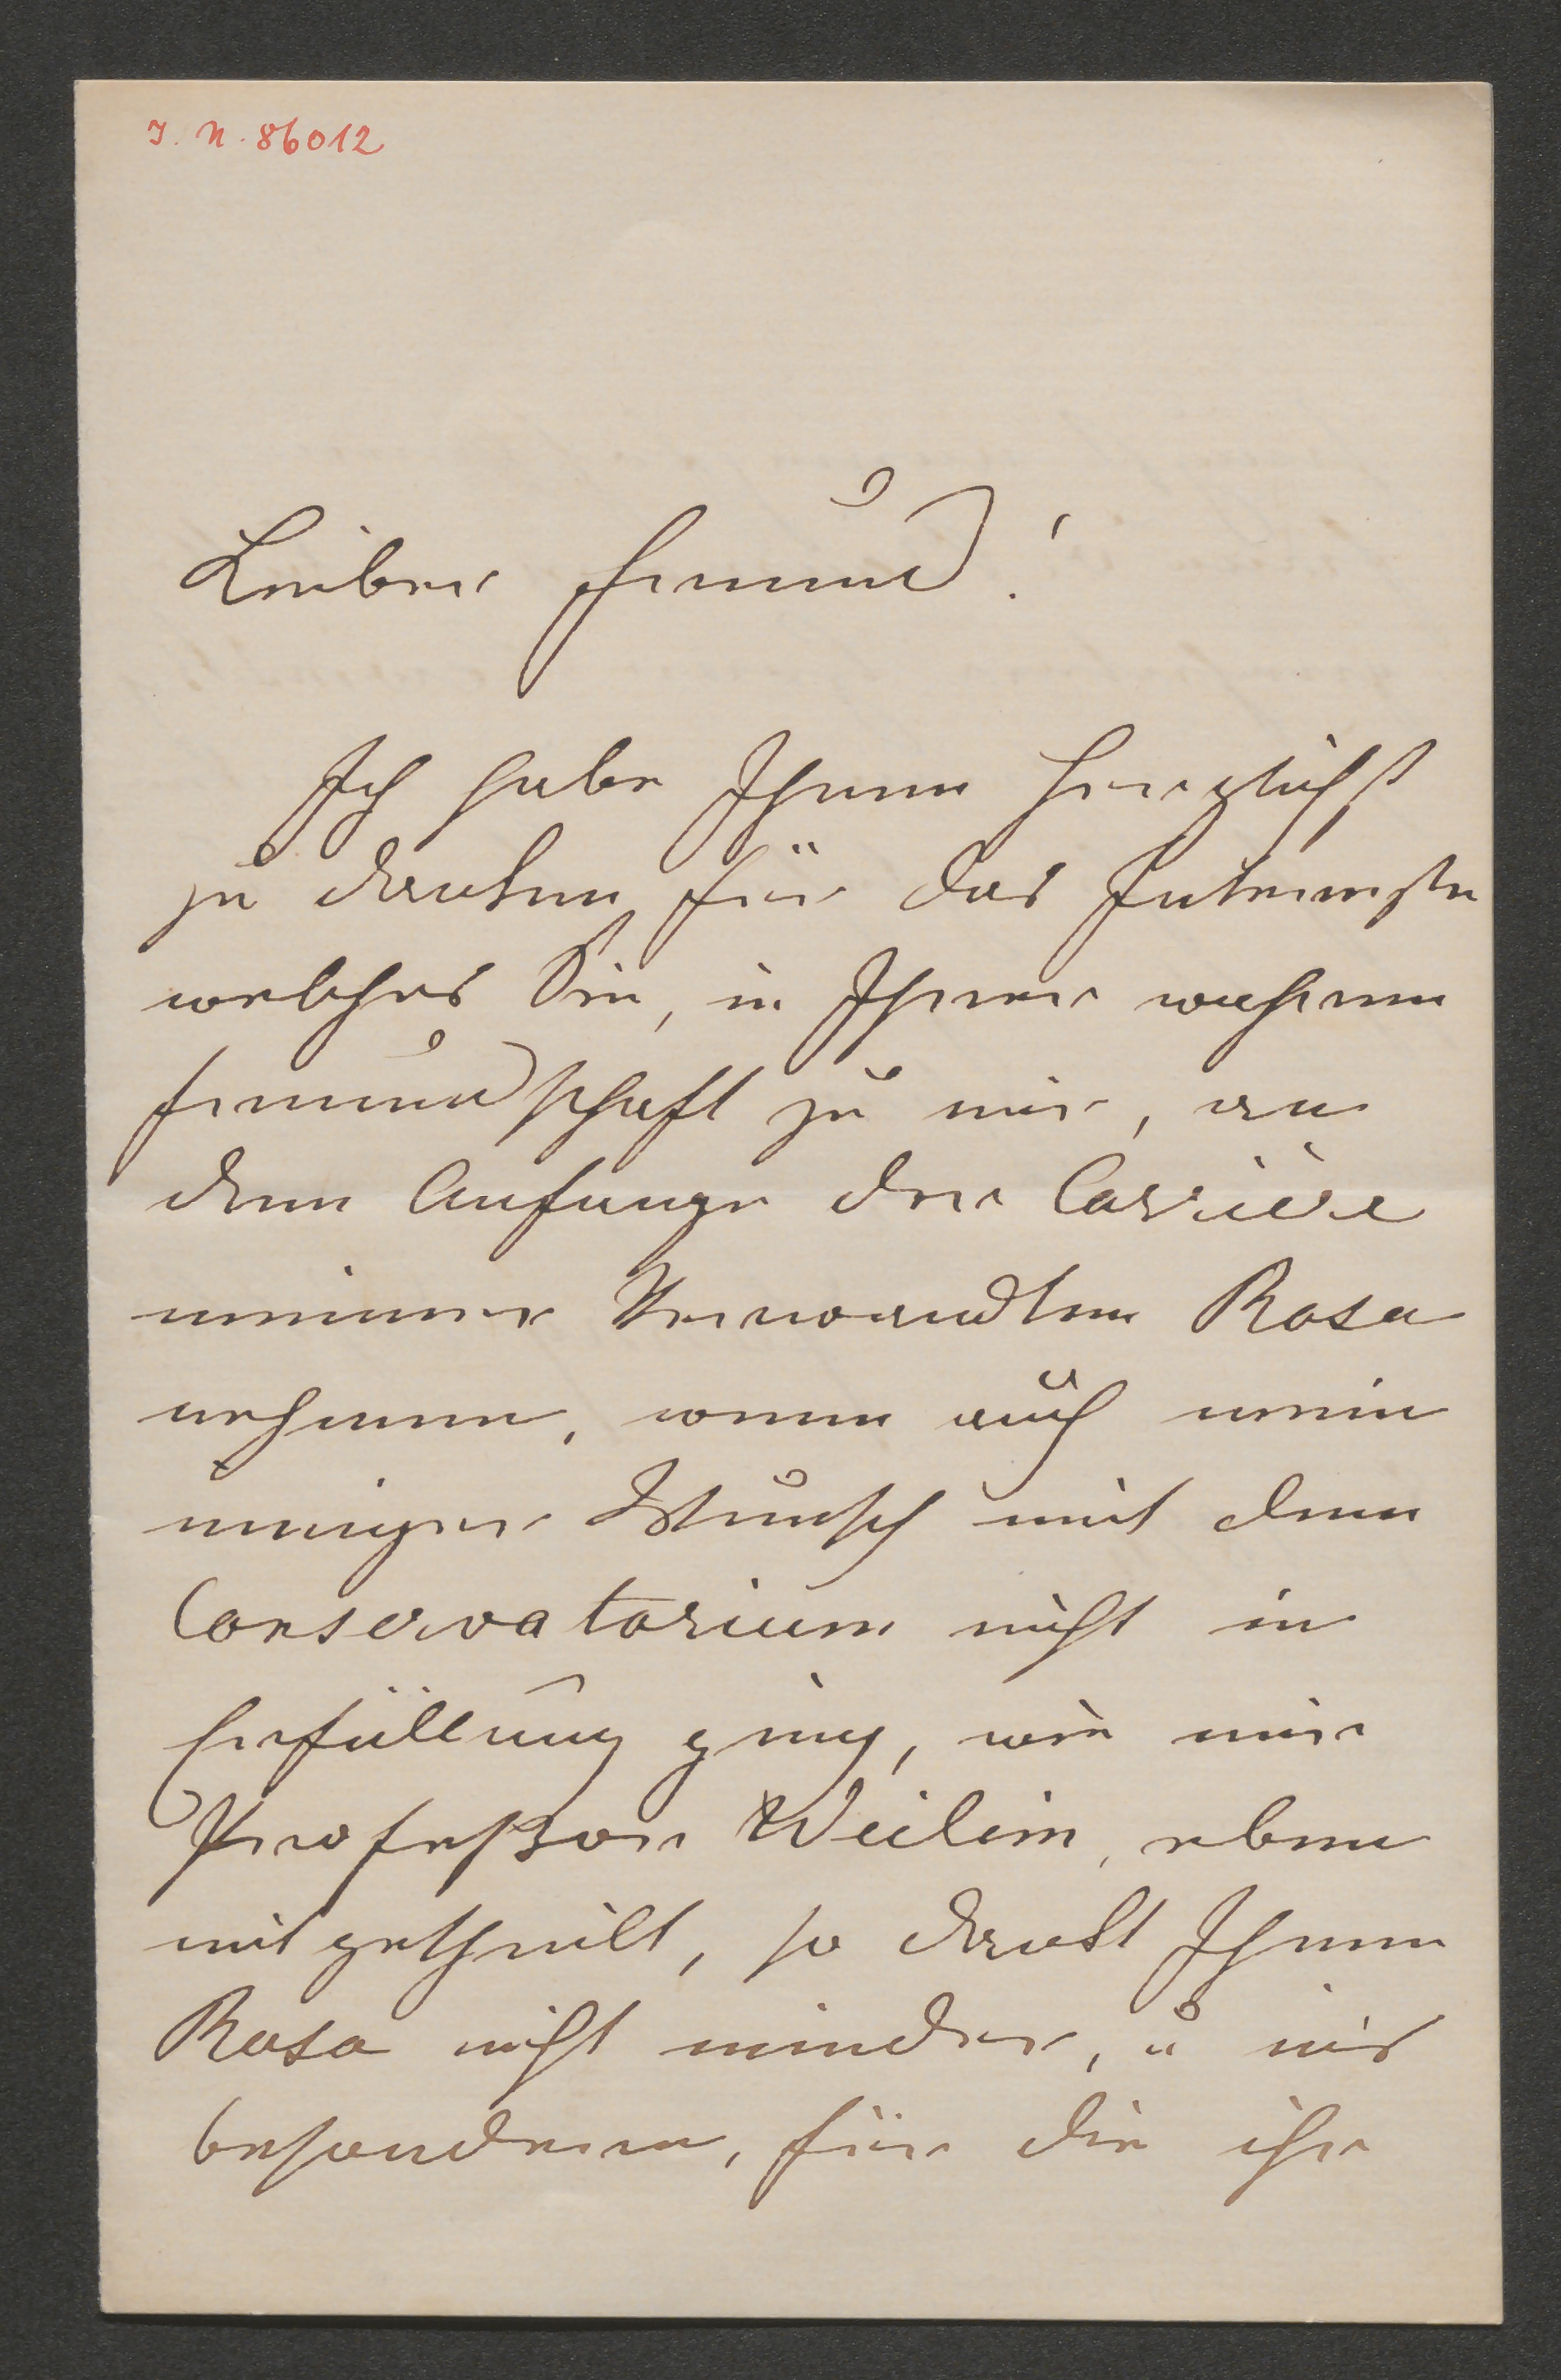 I. N. 86012
Lieber Freund!
Ich habe Ihnen herzlichst
zu danken für das Interesse
welches Sie, in Ihrer wahren
Freundschaft zu mir, an
dem Anfange der Carrière
meiner Verwandten Rosa
nehmen, wenn auch mein
inniger Wunsch mit dem
Conservatorium nicht in
Erfüllung ging, wie mir
Profeßor Weilen, eben
mitgetheilt, so dankt Ihnen
Rosa nicht minder, u ins
besondere, für die ihr